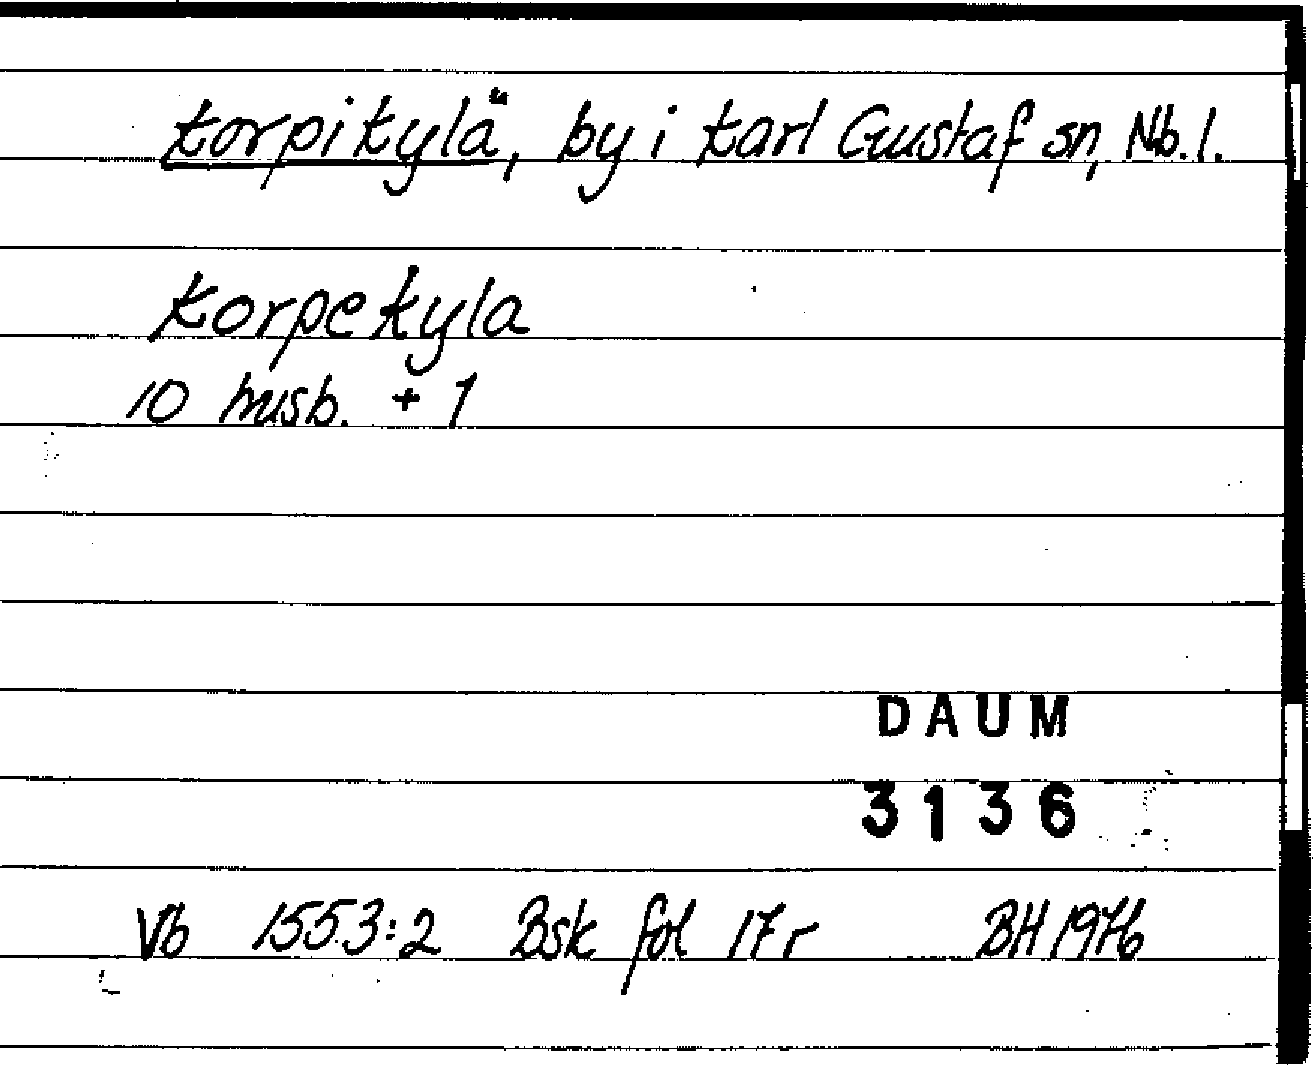 Korpikylä, by i Karl Gustaf sn, Nb. l.
Korpekyla
10 husb. + 1
DAUM
3136
Vb 1553:2 Bsk fol 17r BH 1976